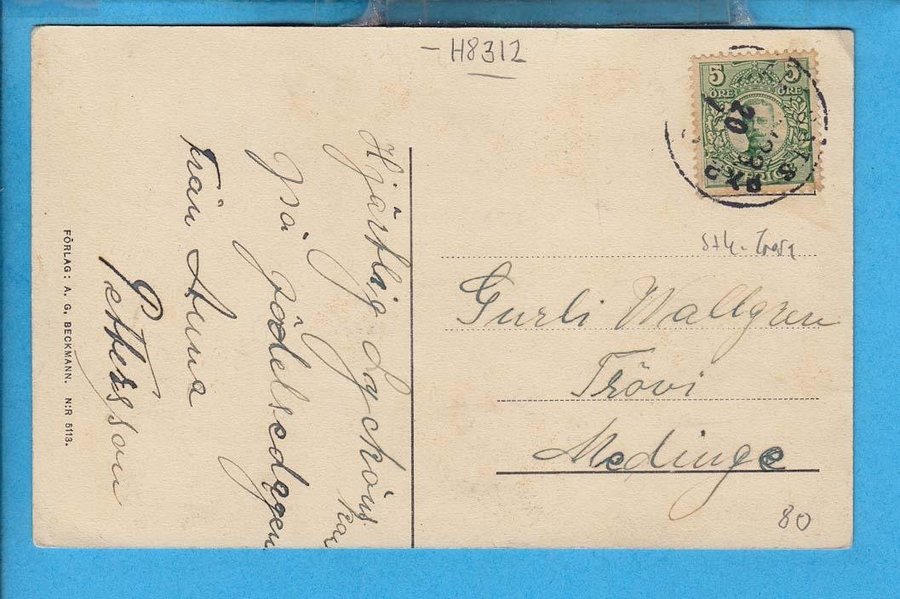 – H8312
5 5
ÖRE ÖRE
20
Hjärtlig Lyckönskan
på födelsedagen
från Anna
Pettersson
FÖRLAG: A. G. BECKMANN. N:R 5113.
Gurli Wallgren
Trövi
Medinge
80